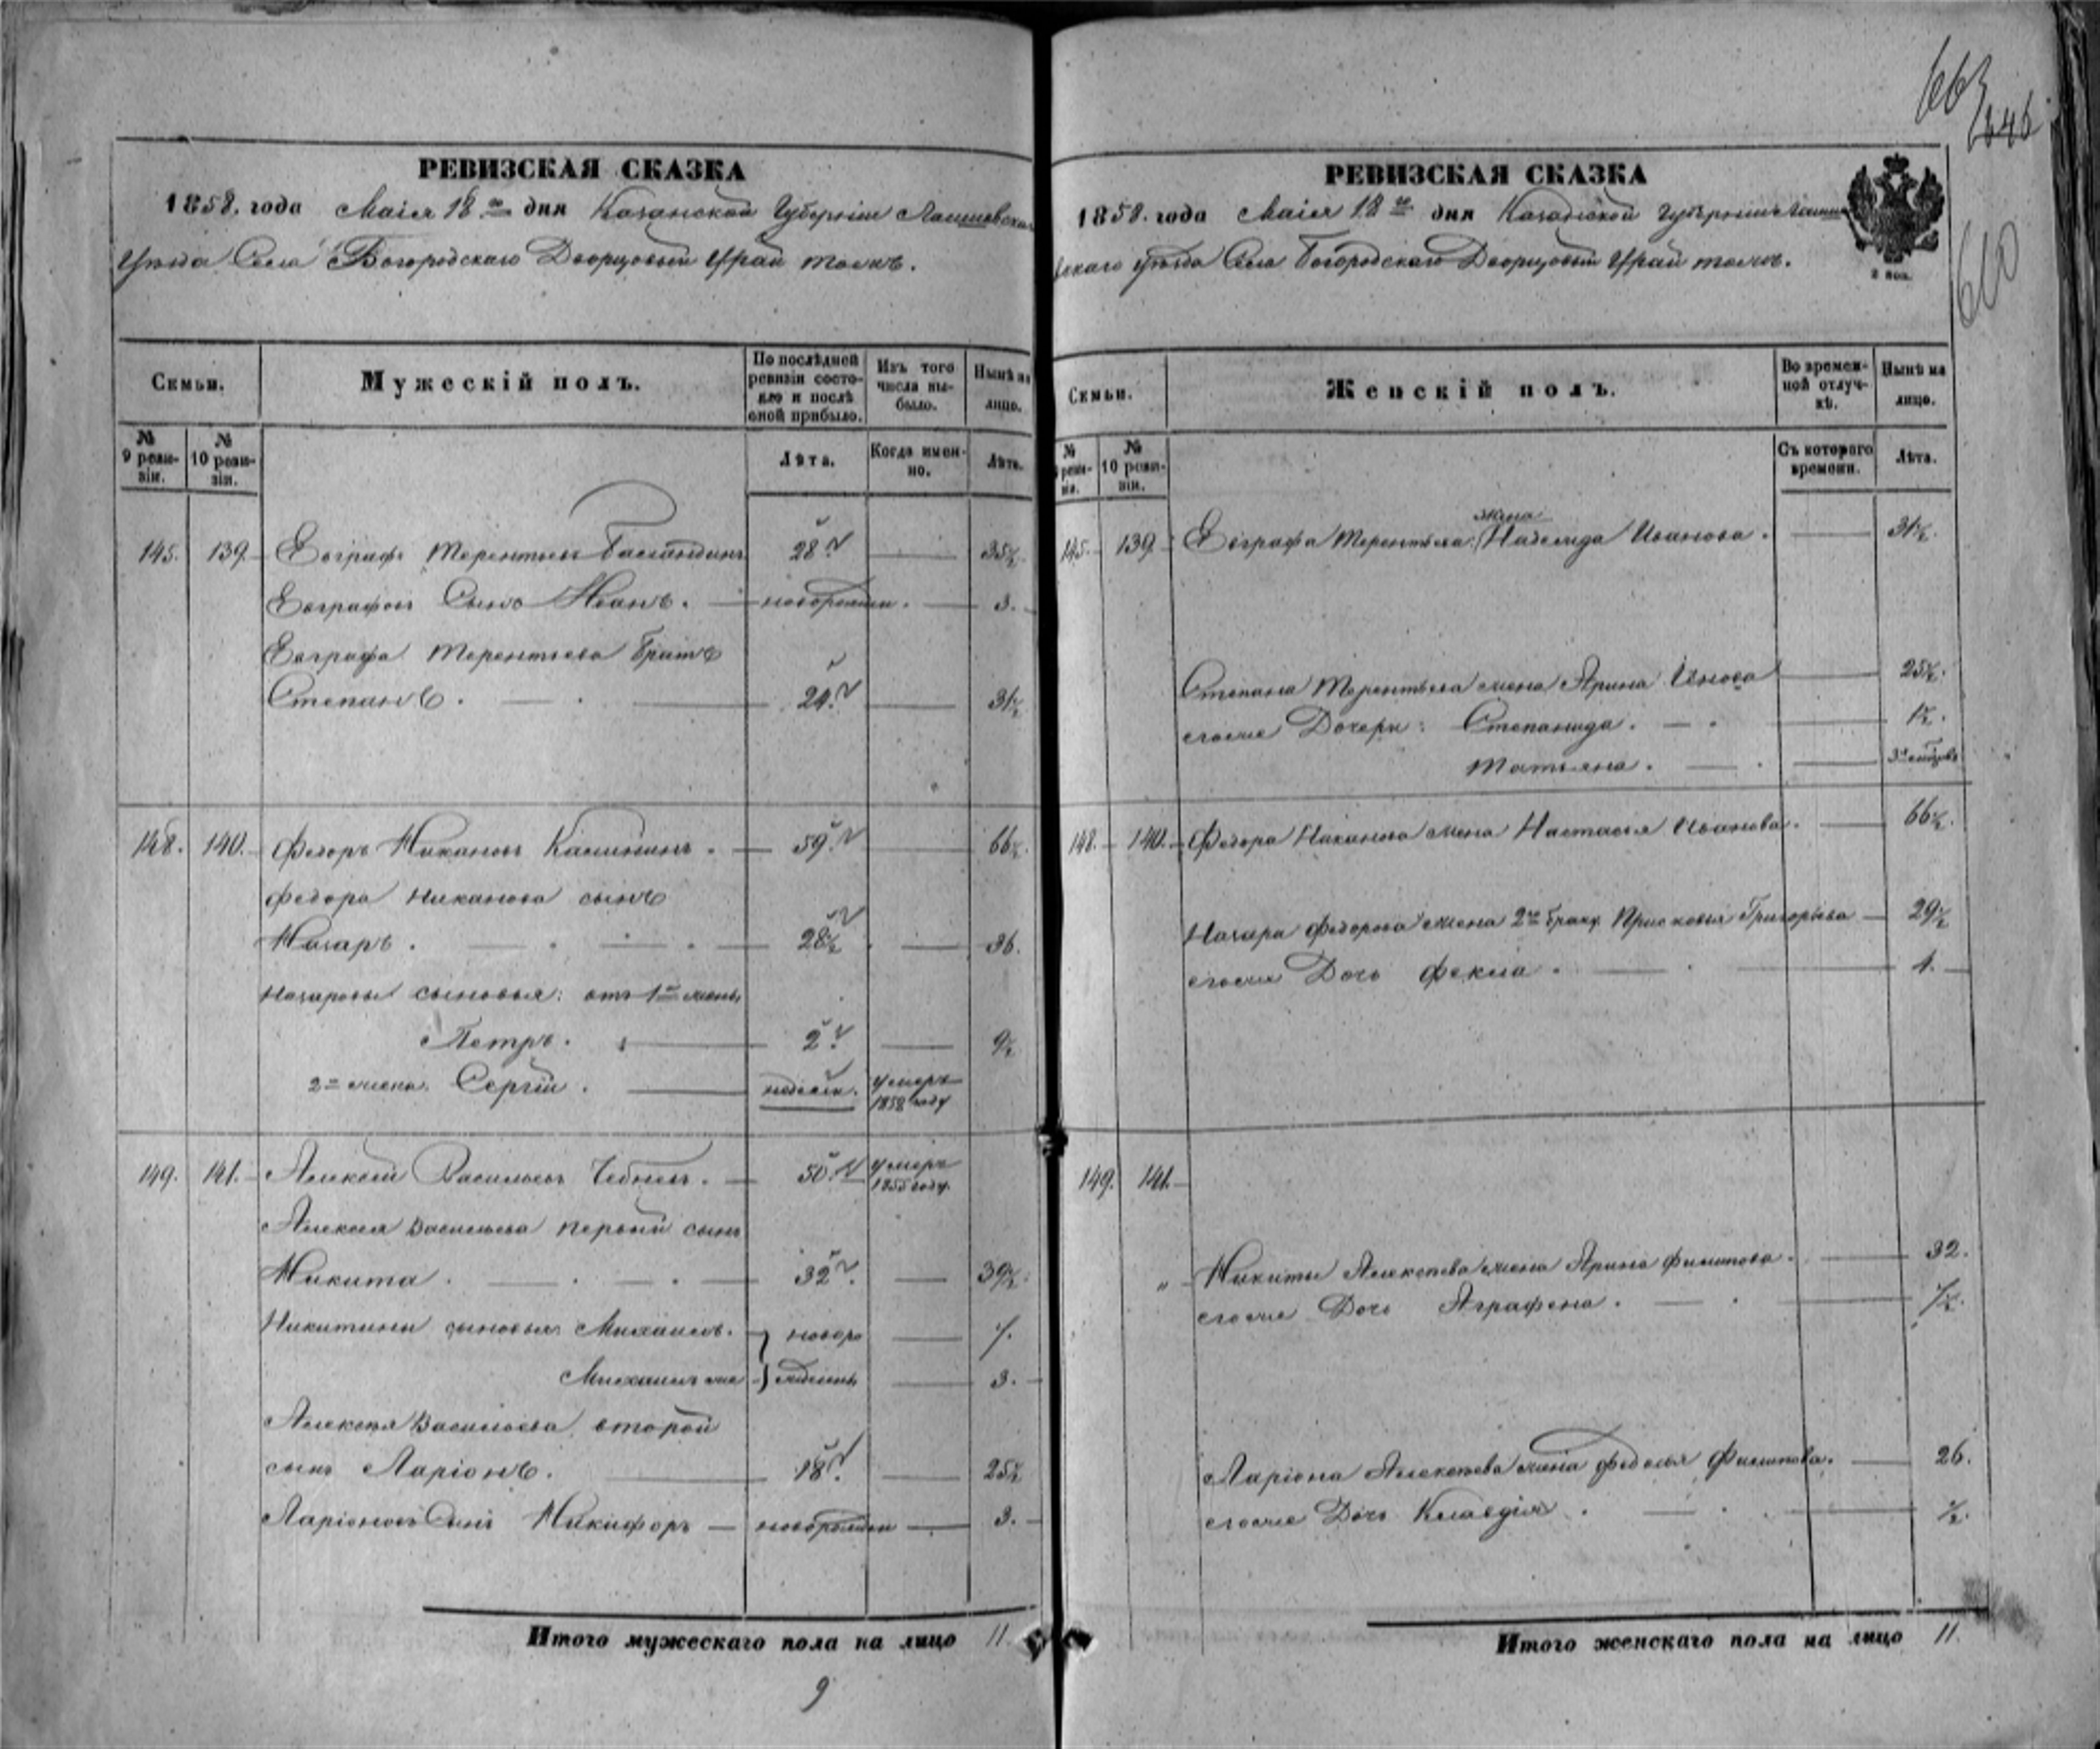 663/646
РЕВИЗСКАЯ СКАЗКА
1858. года Маія 18го дня Казанской Губерніи Лаишевскаго
Уѣзда Села Богородскаго Дворцовый Урай тожъ.
Семьи.
Мужескій полъ.
По послѣдней ревизіи состояло и послѣ оной прибыло.
Изъ того числа выбыло.
Нынѣ на лицо.
№ 9 ревизіи.
№ 10 ревизіи.
Лѣта.
Когда именно.
Лѣта.
145. 139. Евграфъ Терентьевъ 28 — 35½
Евграфовъ Сынъ Иванъ. — новорожден. — 3.
Евграфа Терентьева братъ
Степанъ. — 24. — 31½
148. 140. Федоръ Никановъ Калининъ. — 59. — 66½.
Федора Никанова сынъ
Назаръ. — 28½ — 36.
Назаровы сыновья: отъ 1й жены
Петръ. — 2. — 9½
2й жены. Сергій. — недѣли. умеръ 1858 году
149. 141. Алексѣй Васильевъ — 50. умеръ 1855 году.
Алексея Васильева первый сынъ
Никита. — 32. — 39½.
Никитины сыновья Михаилъ. } новоро — 7.
Михаилъ же } жденны — 3.
Алексѣя Васильева второй
сынъ Ларіонъ. — 18. — 25½
Ларіоновъ Сынъ Никифоръ — новорожден — 3.
Итого мужескаго пола на лицо 11.
9
РЕВИЗСКАЯ СКАЗКА
1858. года Маія 18го дня Казанской Губерніи Лаише
вскаго уѣзда Села Богородскаго Дворцовый Урай тожъ.
2 коп.
610
Семьи.
Женскій полъ.
Во временной отлучкѣ.
Нынѣ на лицо.
№ реви-зіи.
№ 10 ревизіи.
Съ котораго времени.
Лѣта.
145. 139. Евграфа Терентьева жена Надежда Иванова. — 31½.
Степана Терентьева жена Арина — 25½.
его же Дочери: Степанида. — 1½.
Татьяна. —
148. 140. Федора Никанова жена Настасья Иванова. — 66½.
Назара Федорова жена 2го браку Прасковья Григорьева — 29½
его же Дочь Фекла. — 1.
149. 141.
„ Никиты Алексѣева жена Арина Филипова. — 32.
его же Дочь Аграфена. — ½.
Ларіона Алексѣева жена Федосья Филипова. — 26.
его же Дочь Клавдія. — ½.
Итого женскаго пола на лицо 11.